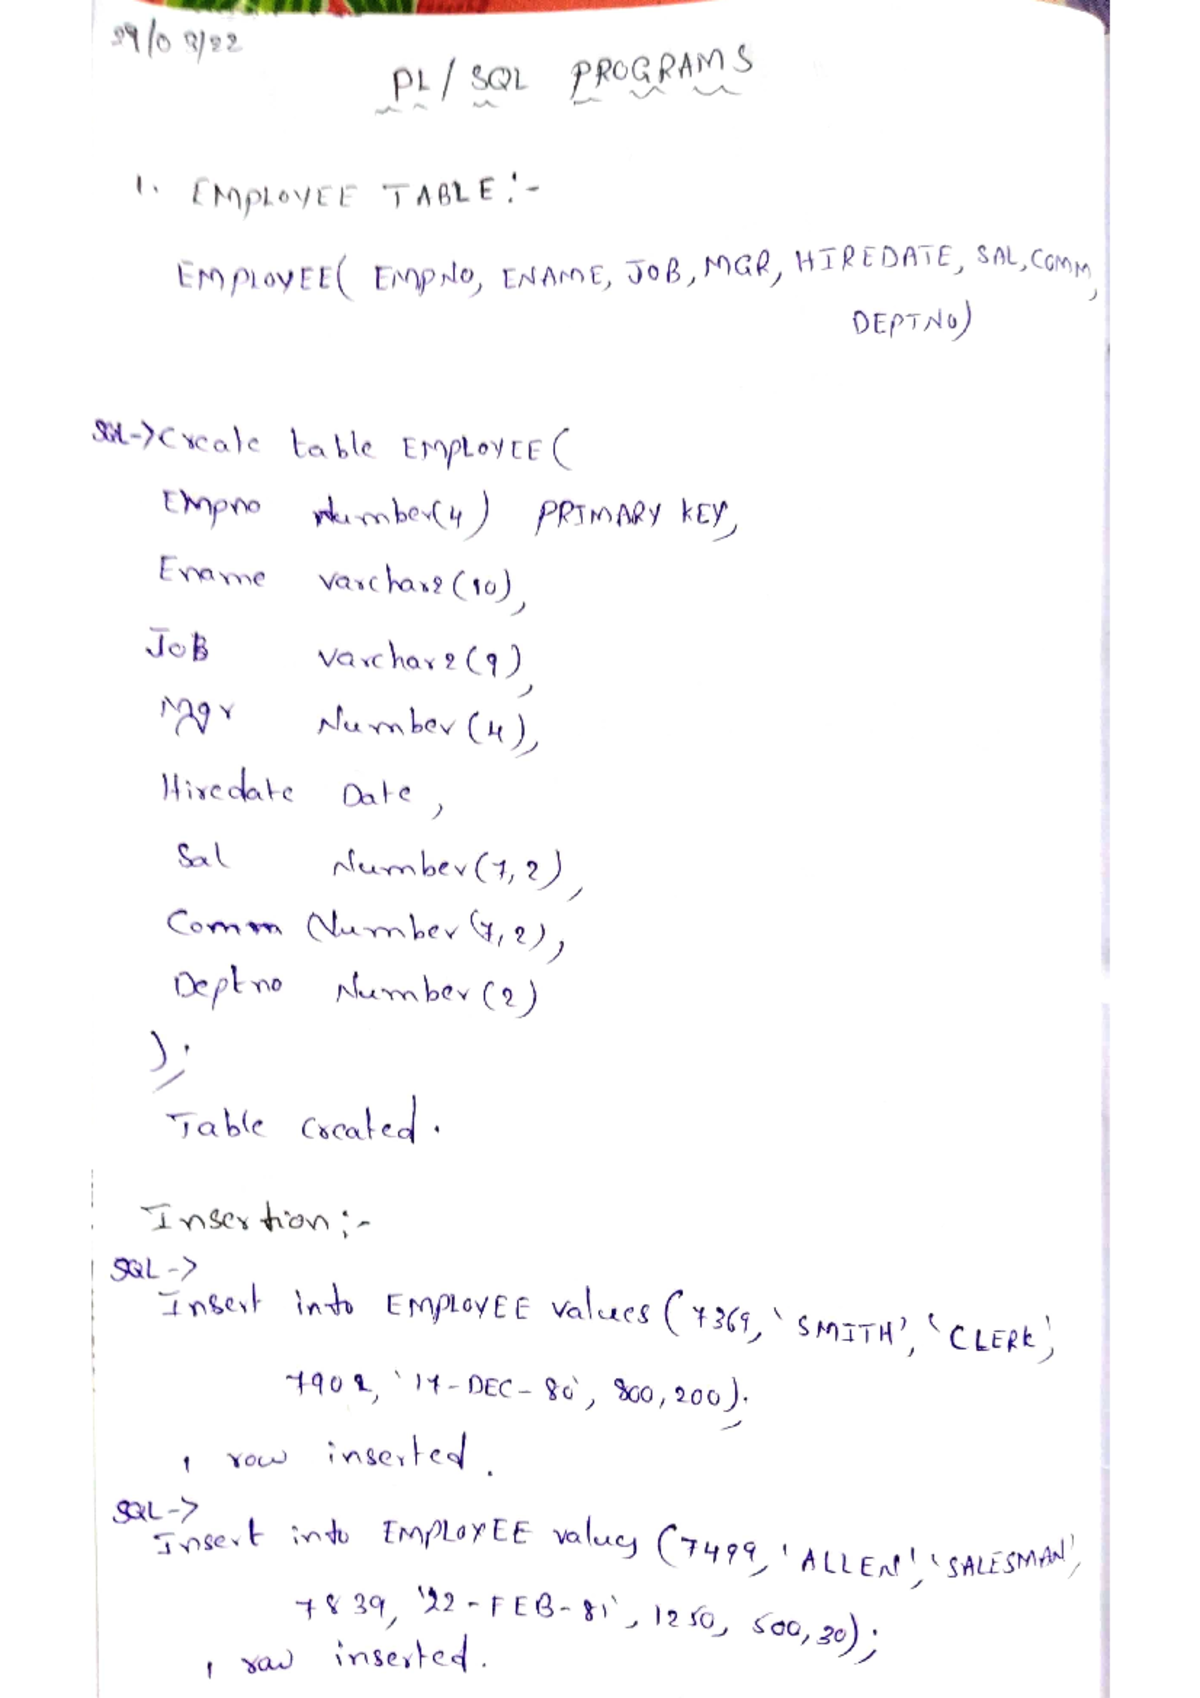 29/03/22
PL/SQL PROGRAMS
1. EMPLOYEE TABLE:-
EMPLOYEE( EMPNO, ENAME, JOB, MGR, HIREDATE, SAL, COMM,
DEPTNO)
SQL->Create table EMPLOYEE(
Empno Number(4) PRIMARY KEY,
Ename varchar2(10),
JOB varchar2(9),
Mgr Number(4),
Hiredate Date,
Sal Number(7,2),
Comm Number(7,2),
Deptno Number(2)
);
Table created.
Insertion:-
SQL->
Insert into EMPLOYEE values(7369, 'SMITH', 'CLERK',
7902, '17-DEC-80', 800, 200);
1 row inserted.
SQL->
Insert into EMPLOYEE values (7499, 'ALLEN', 'SALESMAN',
7839, '22-FEB-81', 1250, 500, 30);
1 row inserted.